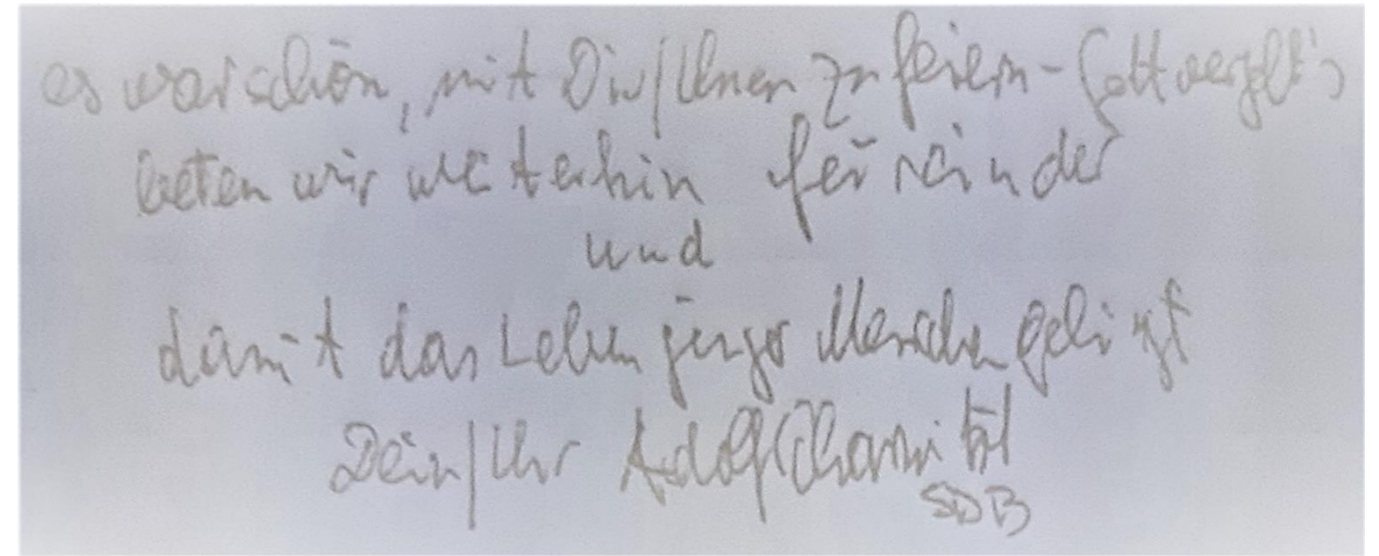 es war schön, mit Dir/Ihnen zu feiern - Gott vergelt's
beten wir weiterhin für einander
und
damit das Leben junger Menschen gelingt
Dein/Ihr Adolf
SDB